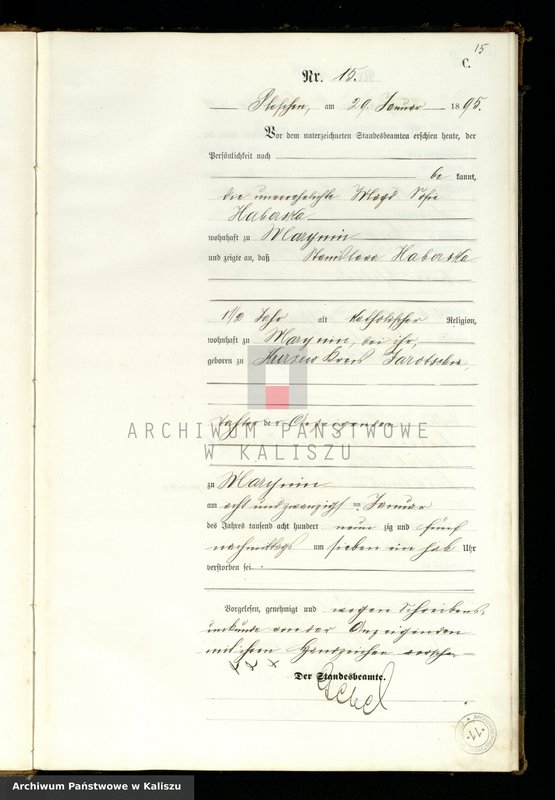 15
C.
Nr. 15.
Pleschen, am 29. Januar 1895.
Vor dem unterzeichneten Standesbeamten erschien heute, der
Persönlichkeit nach
be kannt,
die unverehelichte Magd Sofie
Haberska
wohnhaft zu Marynin
und zeigte an, daß Stanislawa Haberska
1 1/2 Jahr alt katholischer Religion,
wohnhaft zu Marynin, bei ihr,
geboren zu Kreis Jarotschin,
Tochter der Anzeigenden
ARCHIWUM PAŃSTWOWE
W KALISZU
zu Marynin
am acht und zwanzigsten Januar
des Jahres tausend acht hundert neun zig und fünf
nachmittags um sieben ein halb Uhr
verstorben sei.
Vorgelesen, genehmigt und wegen Schreibens-
unkunde von der Anzeigenden
mit ihrem Handzeichen versehen
x x x
Der Standesbeamte.
11
Archiwum Państwowe w Kaliszu